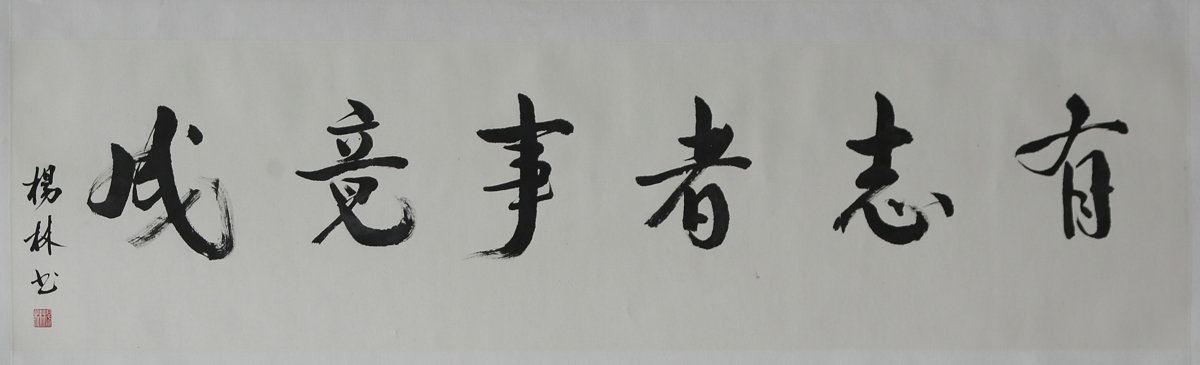 有志者事竟成
楊林书